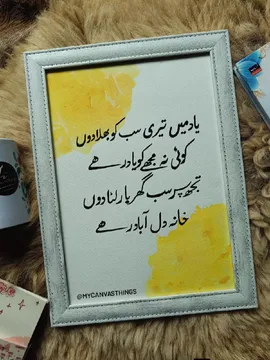 یاد میں تیری سب کو بھلا دوں
کوئی نہ مجھ کو یاد رہے
تجھ پر سب گھر بار لٹا دوں
خانہ دل آباد رہے
@MYCANVASTHINGS